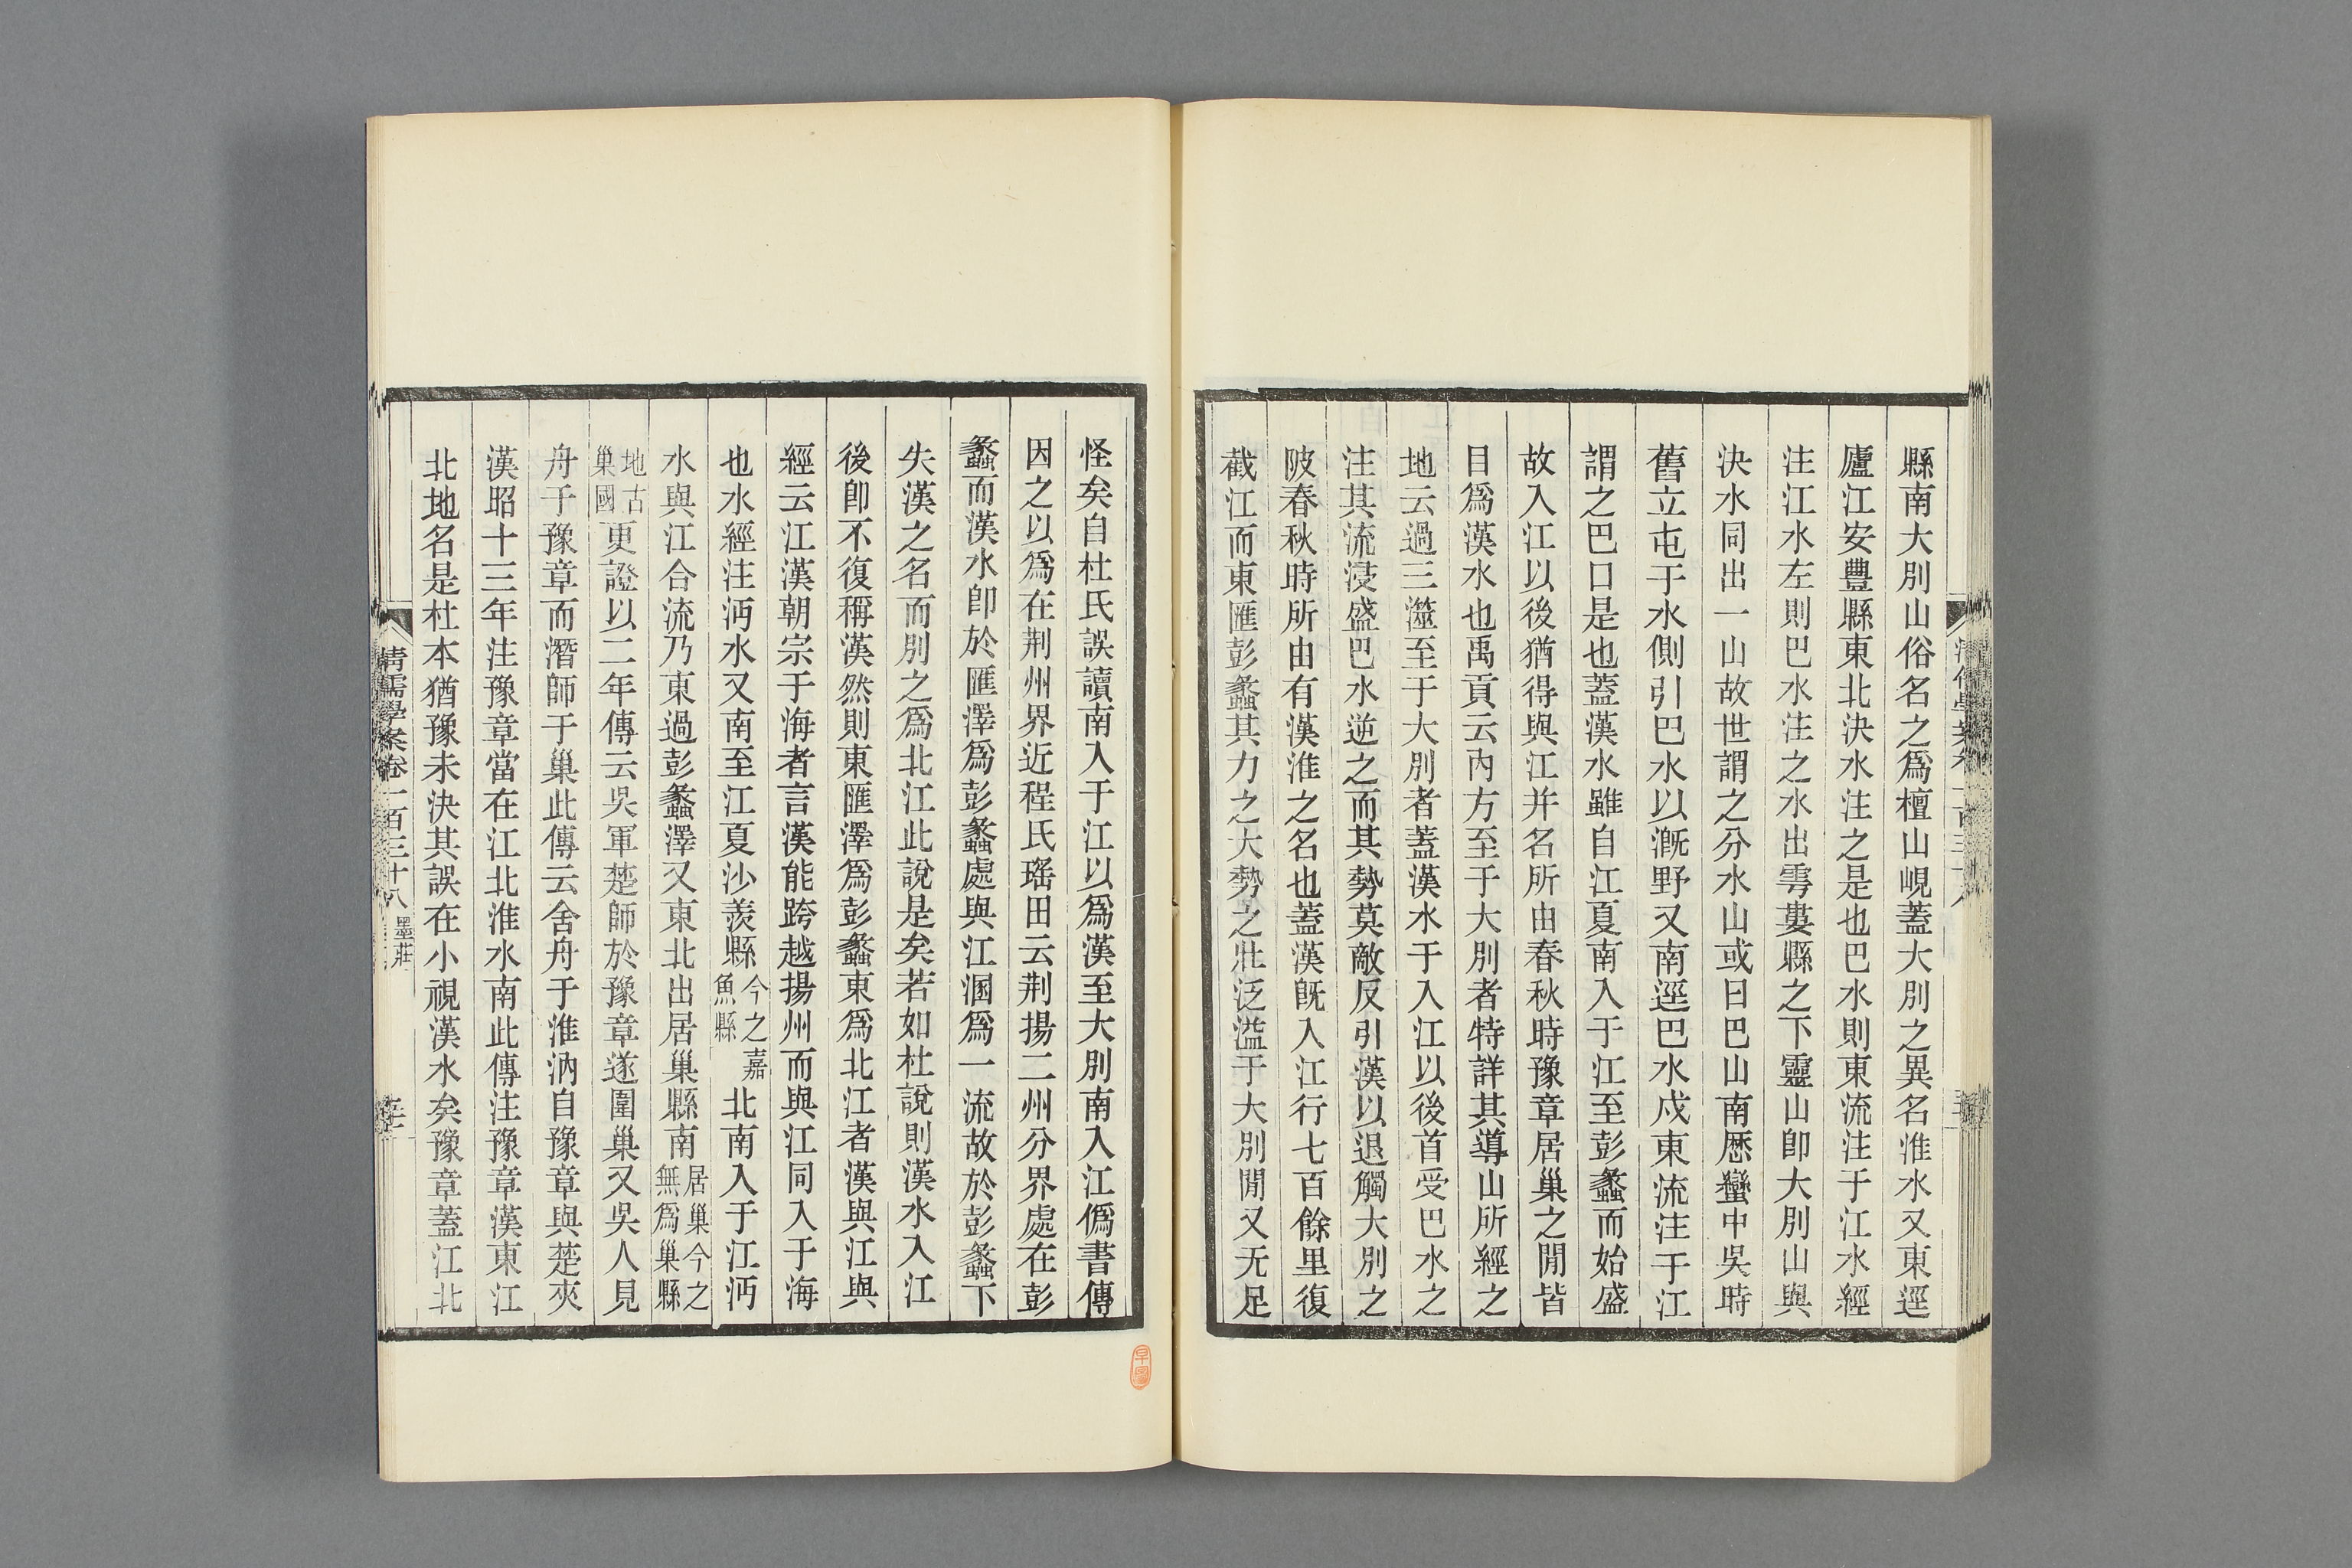 縣南大別山俗名之爲檀山峴蓋大別之異名淮水又東逕
廬江安豐縣東北決水注之是也巴水則東流注于江水經
注江水左則巴水注之水出雩婁縣之下靈山卽大別山與
決水同出一山故世謂之分水山或曰巴山南歷蠻中吳時
舊立屯于水側引巴水以漑野又南逕巴水戍東流注于江
謂之巴口是也蓋漢水雖自江夏南入于江至彭蠡而始盛
故入江以後猶得與江并名所由春秋時豫章居巢之閒皆
目爲漢水也禹貢云內方至于大別者特詳其導山所經之
地云過三澨至于大別者蓋漢水于入江以後首受巴水之
注其流浸盛巴水逆之而其勢莫敵反引漢以退觸大別之
陂春秋時所由有漢淮之名也蓋漢旣入江行七百餘里復
截江而東匯彭蠡其力之大勢之壯泛溢于大別閒又无足
怪矣自杜氏誤讀南入于江以爲漢至大別南入江僞書傳
因之以爲在荆州界近程氏瑤田云荆揚二州分界處在彭
蠡而漢水卽於匯澤爲彭蠡處與江溷爲一流故於彭蠡下
失漢之名而別之爲北江此說是矣若如杜說則漢水入江
後卽不復稱漢然則東匯澤爲彭蠡東爲北江者漢與江與
經云江漢朝宗于海者言漢能跨越揚州而與江同入于海
也水經注沔水又南至江夏沙羨縣今之嘉魚縣北南入于江沔
水與江合流乃東過彭蠡澤又東北出居巢縣南居巢今之無爲巢縣
地古巢國更證以二年傳云吳軍楚師於豫章遂圍巢又吳人見
舟于豫章而潛師于巢此傳云舍舟于淮汭自豫章與楚夾
漢昭十三年注豫章當在江北淮水南此傳注豫章漢東江
北地名是杜本猶豫未決其誤在小視漢水矣豫章蓋江北
清儒學案卷一百三十八 墨莊